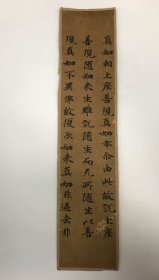 真如相上座善現真如亦尒由此故說上座
善現隨如來生雖說隨生而无所隨生以善
現真如不異佛故復次如來真如非過去非